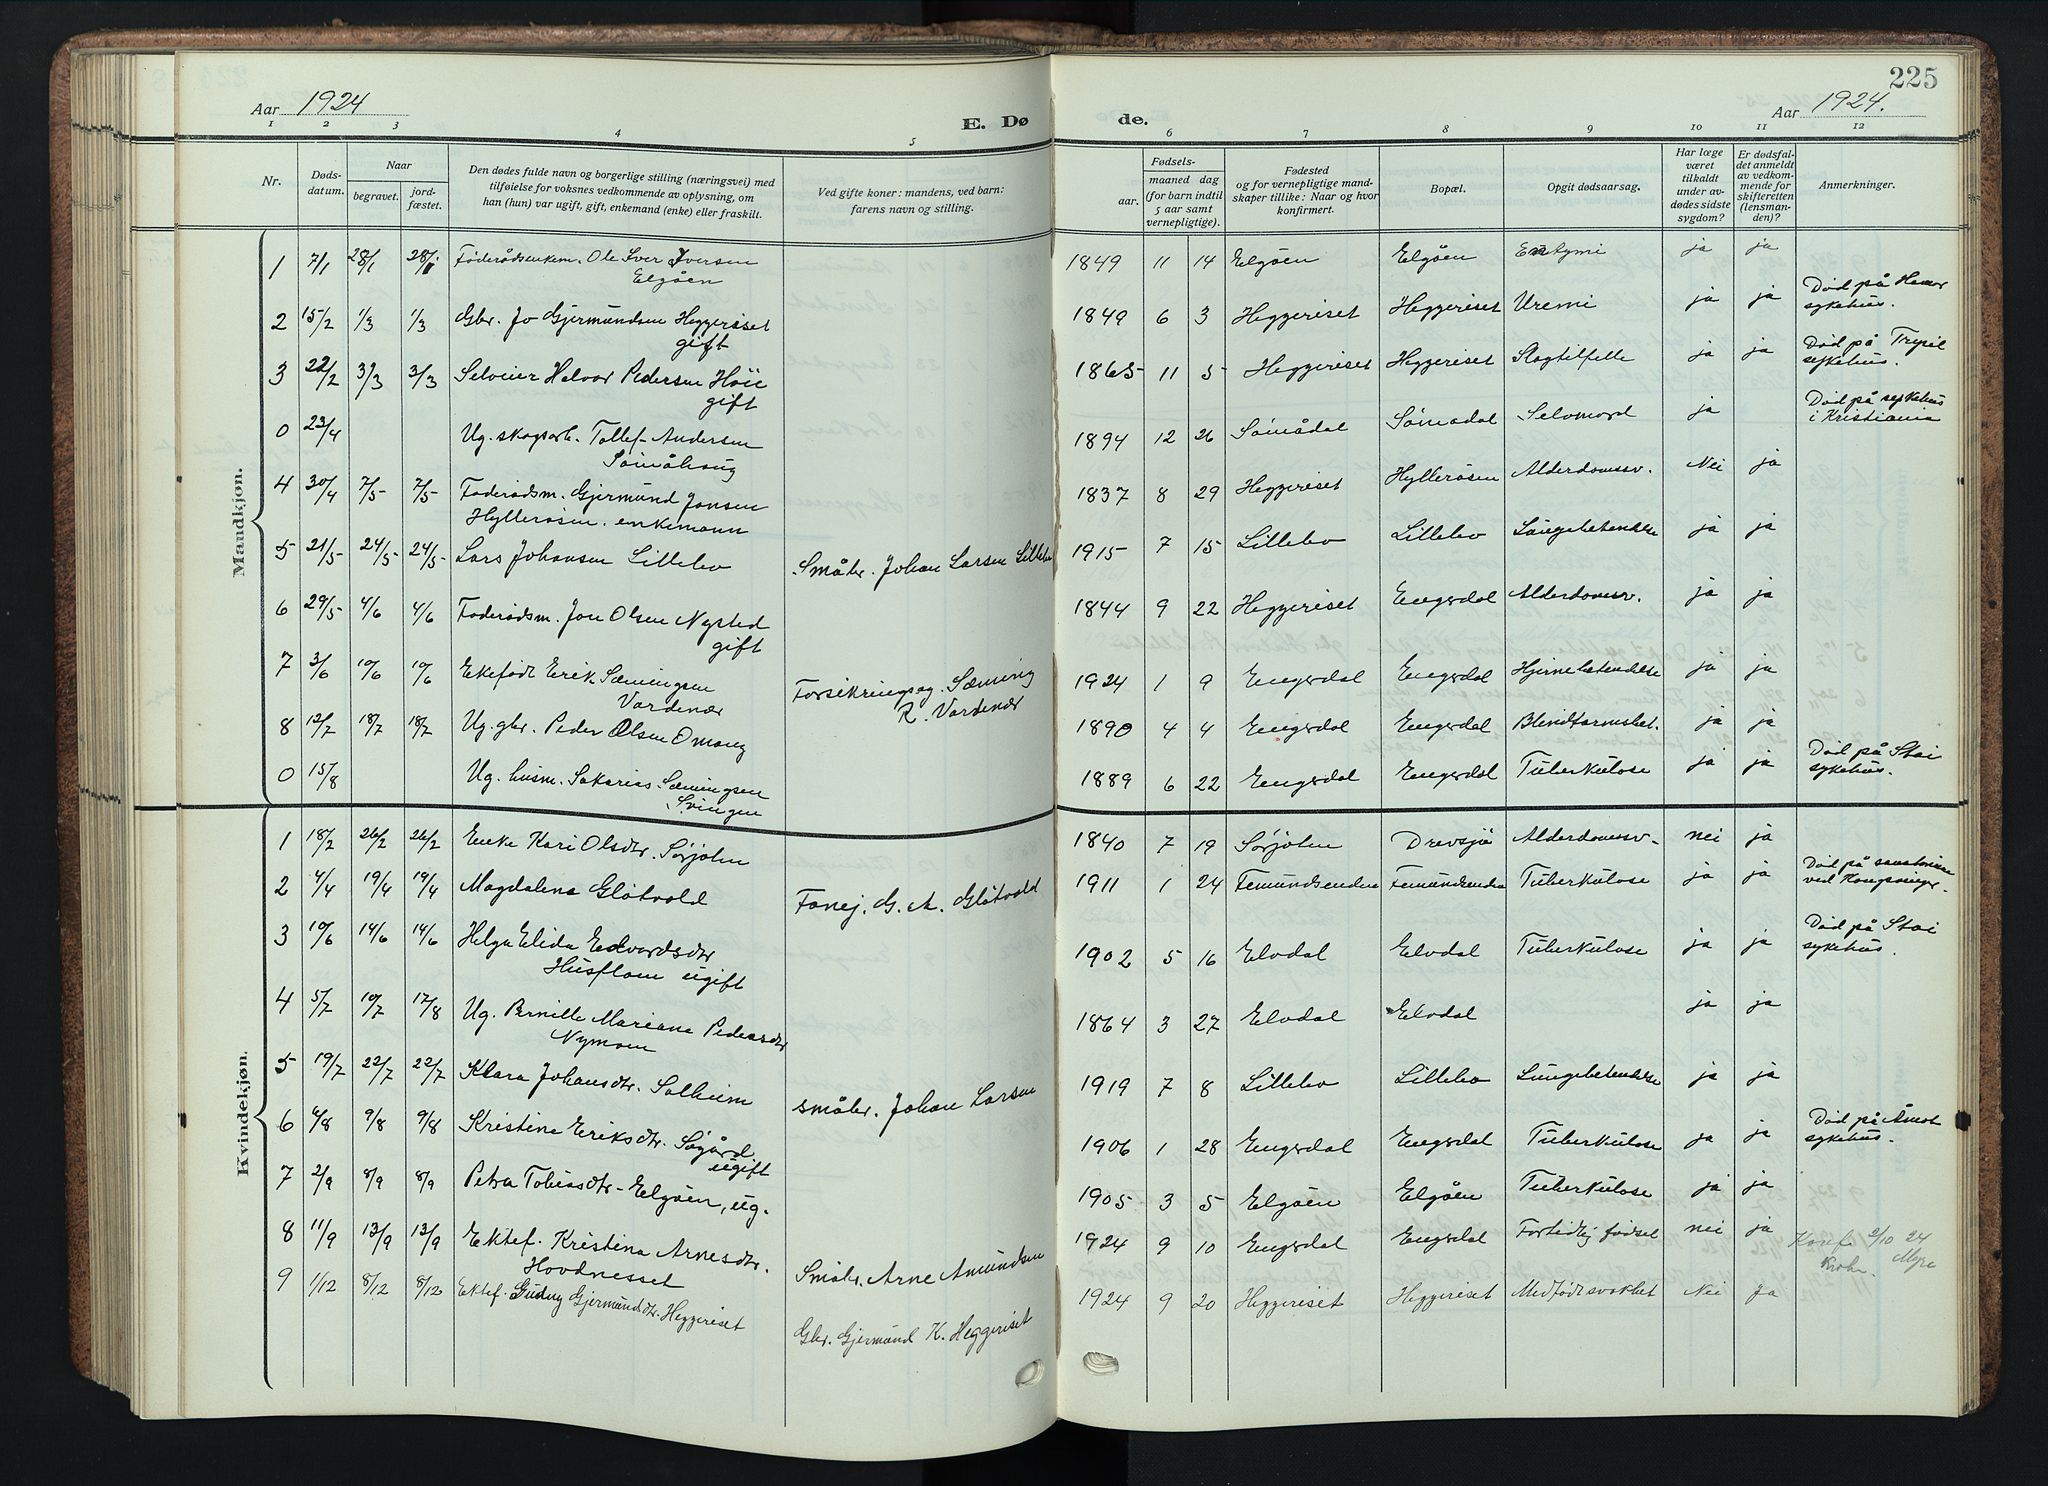 225
Aar 1924
E. Dø
de.
Aar 1924.
1 2 3 4 5 6 7 8 9 10 11 12
Nr.
Døds-
datum.
Naar
begravet.
jord-
fæstet.
Den dødes fulde navn og borgerlige stilling (næringsvei) med
tilføielse for voksnes vedkommende av oplysning, om
han (hun) var ugift, gift, enkemand (enke) eller fraskilt.
Ved gifte koner: mandens, ved barn:
farens navn og stilling.
Fødsels-
aar.
maaned dag
(for barn indtil
5 aar samt
vernepligtige).
Fødested
og for vernepligtige mand-
skaper tillike: Naar og hvor
konfirmert.
Bopæl.
Opgit dødsaarsag.
Har læge
været
tilkaldt
under av-
dødes sidste
sygdom?
Er dødsfal-
det anmeldt
av vedkom-
mende for
skifteretten
(lensman-
den)?
Anmerkninger.
Mandkjøn.
1 7/1 28/1 28/1 Föderådsenkem. Ole Iver Iversen
Elgåen
1849 11 14 Elgåen Elgåen ja ja
2 15/2 1/3 1/3 Gbr. Jo Gjermundsen Heggeriset
gift
1849 6 3 Heggeriset Heggeriset Uremi ja ja Død på Hamar
sykehus.
3 22/2 3/3 3/3 Selveier Halvor Pedersen Höie
gift
1865 11 5 Heggeriset Heggeriset Slagtilfelle ja ja Död på Trysil
sykehus.
0 23/4 Ug. skogsarb. Tollef Andersen
Sömåhaug
1894 12 26 Sömådal Sömådal Selvmord ja Död på sykehus
i Kristiania
4 30/4 7/5 7/5 Föderådsm. Gjermund Jonsen
Hylleråsen. enkemann
1837 8 29 Heggeriset Hylleråsen Alderdomssv. Nei ja
5 21/5 24/5 24/5 Lars Johansen Lillebo Småbr. Johan Larsen Lillebo
1915 7 15 Lillebo Lillebo Lungebetendelse ja ja
6 29/5 4/6 4/6 Föderådsm. Jon Olsen Nysted
gift
1844 9 22 Heggeriset Engerdal Alderdomssv. ja ja
7 3/6 10/6 10/6 Ektefödt Erik Sæmingsen
Vardenær
Forsikringsag. Sæming
R. Vardenær
1924 1 9 Engerdal Engerdal Hjernebetendelse ja ja
8 12/7 18/7 18/7 Ug. gbr. Peder Olsen Omang
1890 4 4 Engerdal Engerdal Blindtarmsbet. ja ja
0 15/8 Ug. husm. Sakarias Sæmingsen
Svingen
1889 6 22 Engerdal Engerdal Tuberkulose ja ja Död på Stai
sykehus.
Kvindekjøn.
1 18/2 26/2 26/2 Enke Kari Olsdtr. Sørjolen
1840 7 19 Sørjolen Drevsjø Alderdomssv. nei ja
2 4/4 19/4 19/4 Magdalena Glötvold Fanej. G. A. Glötvold
1911 1 24 Femundsenden Femundsenden Tuberkulose ja ja Död på
ved Kongsvinger.
3 10/6 14/6 14/6 Helga Elida Edvardsdtr
Husflom ugift
1902 5 16 Elvdal Elvdal Tuberkulose ja ja Död på Stai
sykehus.
4 5/7 10/7 17/8 Ug. Pernille Mariane Pedersdtr
Nymoen
1864 3 27 Elvdal Elvdal ja ja
5 19/7 22/7 22/7 Klara Johansdtr. Solheim småbr. Johan Larsen
1919 7 8 Lillebo Lillebo Lungebetendelse ja ja
6 4/8 9/8 9/8 Kristine Eriksdtr. Søgård
ugift
1906 1 28 Engerdal Engerdal Tuberkulose ja ja Död på Åmot
sykehus.
7 2/9 8/9 8/9 Petra Tobiasdtr. Elgåen, ug.
1905 3 5 Elgåen Elgåen Tuberkulose ja ja
8 11/9 13/9 13/9 Ektef. Kristina Arnesdtr.
Hovdnesset
Småbr. Arne Amundsen
1924 9 10 Engerdal Engerdal Fortidlig födsel nei ja Konf 2/10 24
9 1/12 8/12 8/12 Ektef. Gudny Gjermundsdtr. Heggeriset
Gbr. Gjermund K. Heggeriset
1924 9 20 Heggeriset Heggeriset Medfödt svakhet Nei Ja